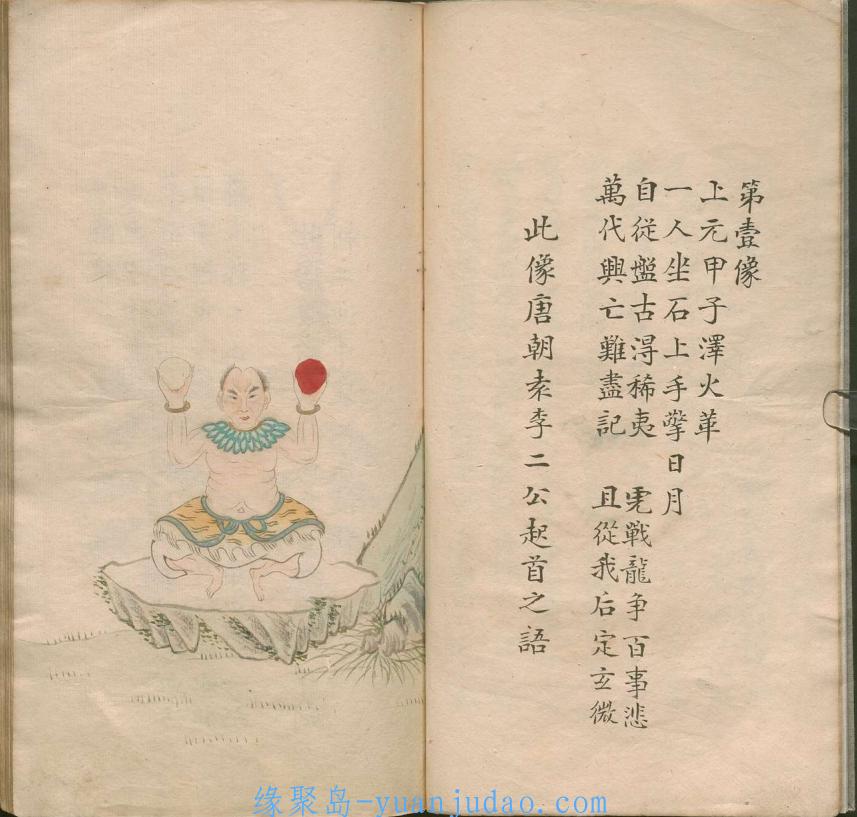 第壹像
上元甲子澤火革
一人坐石上手擎日月
自從盤古淂稀夷 虎戰龍争百事悲
萬代興亡難盡記 且從我后定玄微
此像唐朝袁李二公起首之語
缘聚岛-yuanjudao.com